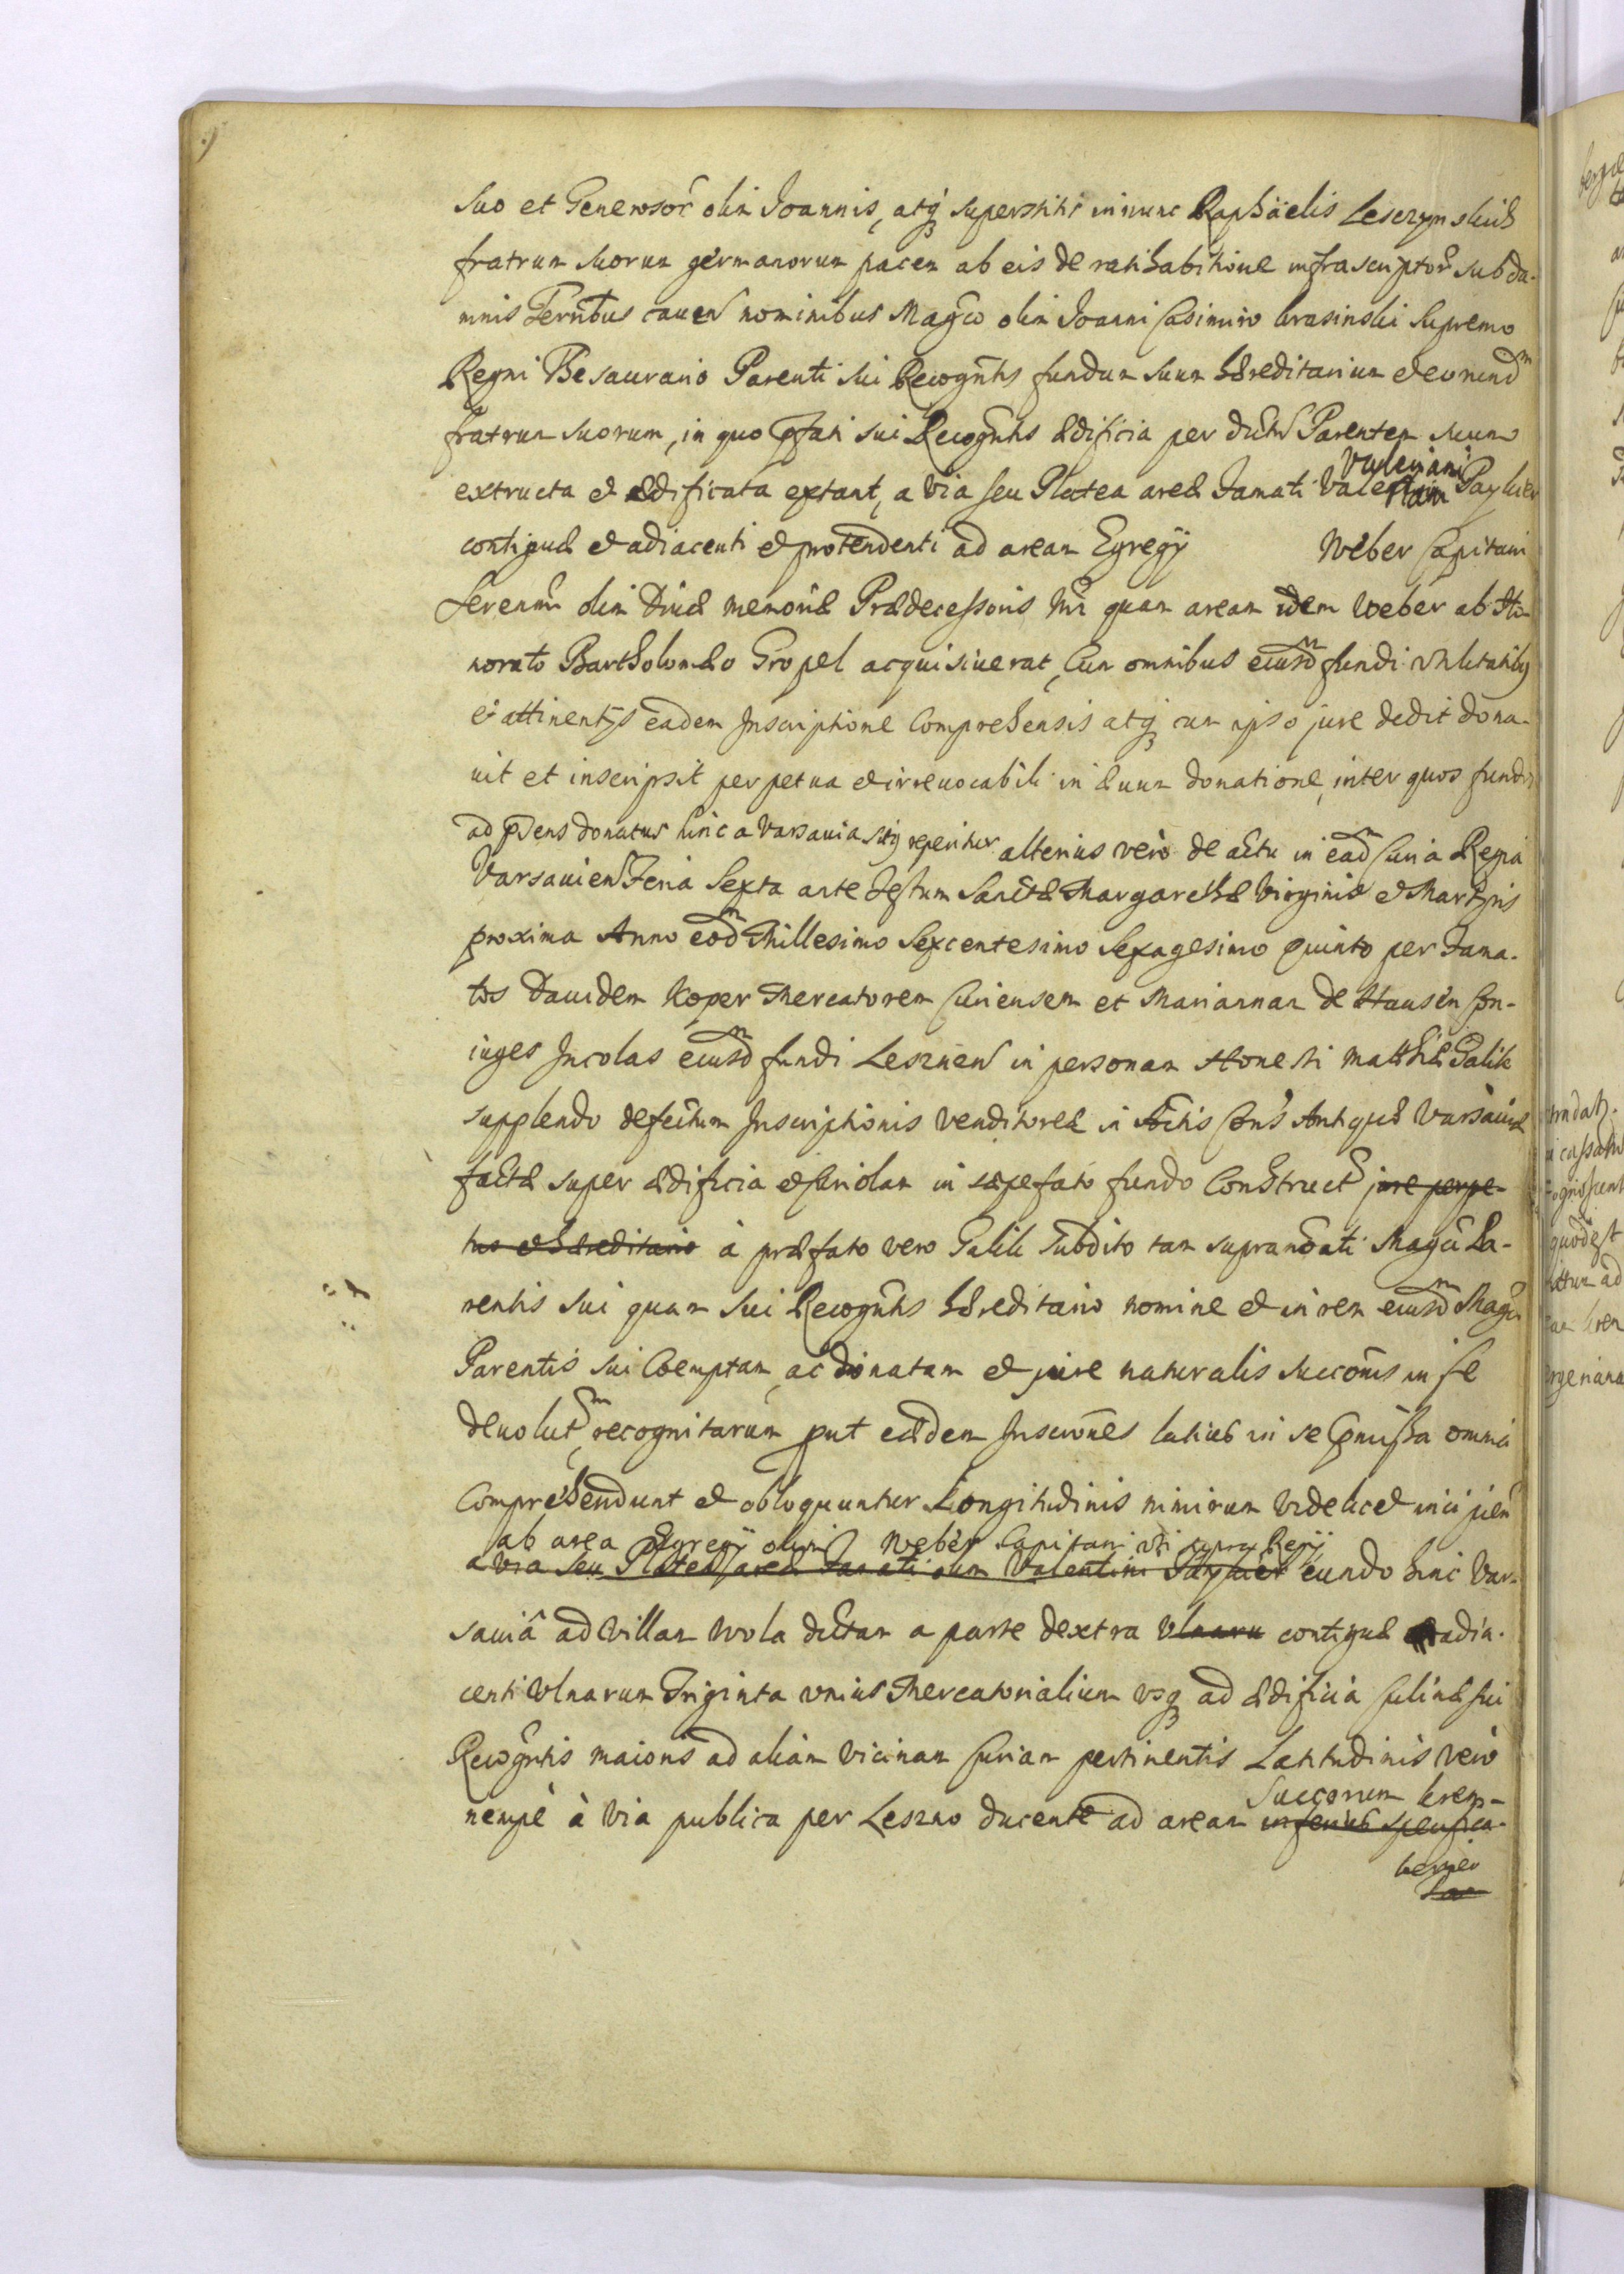 suo et Generosor olim Joannis, atq superstitis in nunc Raphäelis Leszczynskich
fratrum suorum germanorum pacem ab eis de ratihabitione infrascriptor sub da-
mnis Terrnbus cauen nominibus Magco olim Joanni Casimiro Krasinski Supremo
Regni Thesaurario Parenti sui Recogntis fundum suum hæreditarium et eorund
fratrum suorum, in quo pfati sui Recogntis ædificia per dictu Parentem suum
extructa et ædificata extant, a via seu Platea areæ Famati Valeriani Payluer
contiguæ et adiacenti et protendenti ad aream Egregÿ Weber Capitani
Serenmi olim Diuæ memoriæ Prædecessoris Nri quam aream idem Weber ab Ho-
norato Bartholomæo Gropel acquisiuerat, Cum omnibus eiusdm fundi vtilitatibq
et attinentÿs eadem Inscriptione Comprehensis atq cum ipso jure dedit dona-
uit et inscripsit perpetua et irreuocabili in æuum donatione, inter quos fundus
ad psens donatus hinc a Varsauia sitq reperitur alterius vero de actu in eadm Curia Regia
Varsauien Feria Sexta ante Festum Sanctæ Margarethæ Virginis et Martyris
proxima Anno eodm Millesimo Sexcentesimo Sexagesimo quinto per Fama-
tos Dauidem Koper Mercatorem Curiensem et Mariannam de Hausen Con-
iuges Incolas eiusdm fundi Lesznen in personam Honesti Matthiæ Galik
supplendo defectum Inscriptionis venditoreæ in Actis Cons Antiquæ Varsauiæ
factæ super ædificia et Curiolam in sæpefato fundo Construct jure perpe-
tuo et hæreditario à præfato vero Galik Subdito tam supranoati Magci Pa-
rentis sui quam sui Recogntis hæreditario nomine et in rem eiusdm Magci
Parentis sui Coemptam, ac donatam et jure naturalis succonis in se
deuolutm, recognitarum put eædem Inscriones latius in se pmissa omnia
Comprehendunt et obloquuntur Longitudinis nimirum videlicet incipien
ab area Egregÿ olim Weber Capitani vti supra Regÿ
a via seu Platea areæ Famati olim Valentini Payluer eundo hinc Var-
sauiâ ad Villam Wola dictam a parte dextra vlnaru contiguæ adia-
centi vlnarum Triginta vnius Mercatorialium vsq ad ædificia Culinæ sui
Recogntis maioris ad aliam vicinam Curiam pertinentis Latitudinis vero
Succorum Krem-
nempè à via publica per Leszno ducente ad aream inferius specifica-
berger
tam